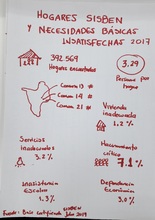 HOGARES SISBEN
Y NECESIDADES BÁSICAS
INSATISFECHAS 2017
392.569
Hogares encuestados
3.29
Personas por
hogar
Comuna 13
Comuna 14
Comuna 21
Vivienda
Inadecuada
1,2 %
Servicios
Inadecuados
3.2 %
Hacinamiento
crítico
7.1 %
Inasistencia
Escolar
1.3 %
Dependencia
Económica
3.0 %
SISBEN
Fuente: Base certificada Julio 2017